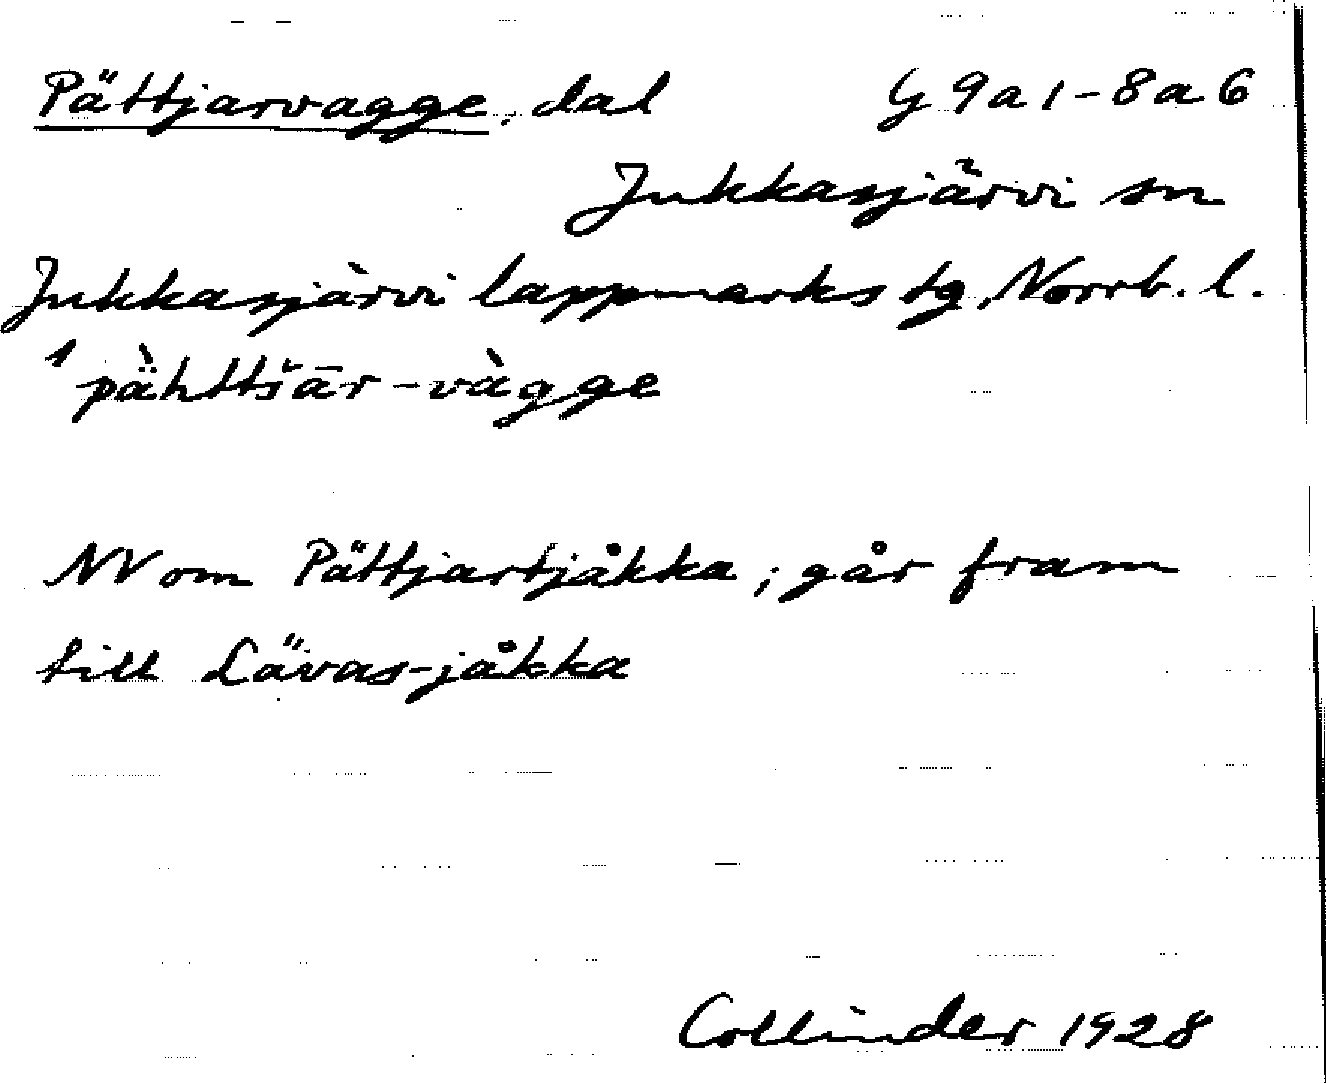 Pättjarvagge, dal G 9a1-8a6
Jukkasjärvi sn
Jukkasjärvi lappmarks tg, Norrb. l.
1 pä̀httšār-vàgge
NV om Pättjartjåkka; går fram
till Lävas-jåkka
Collinder 1928